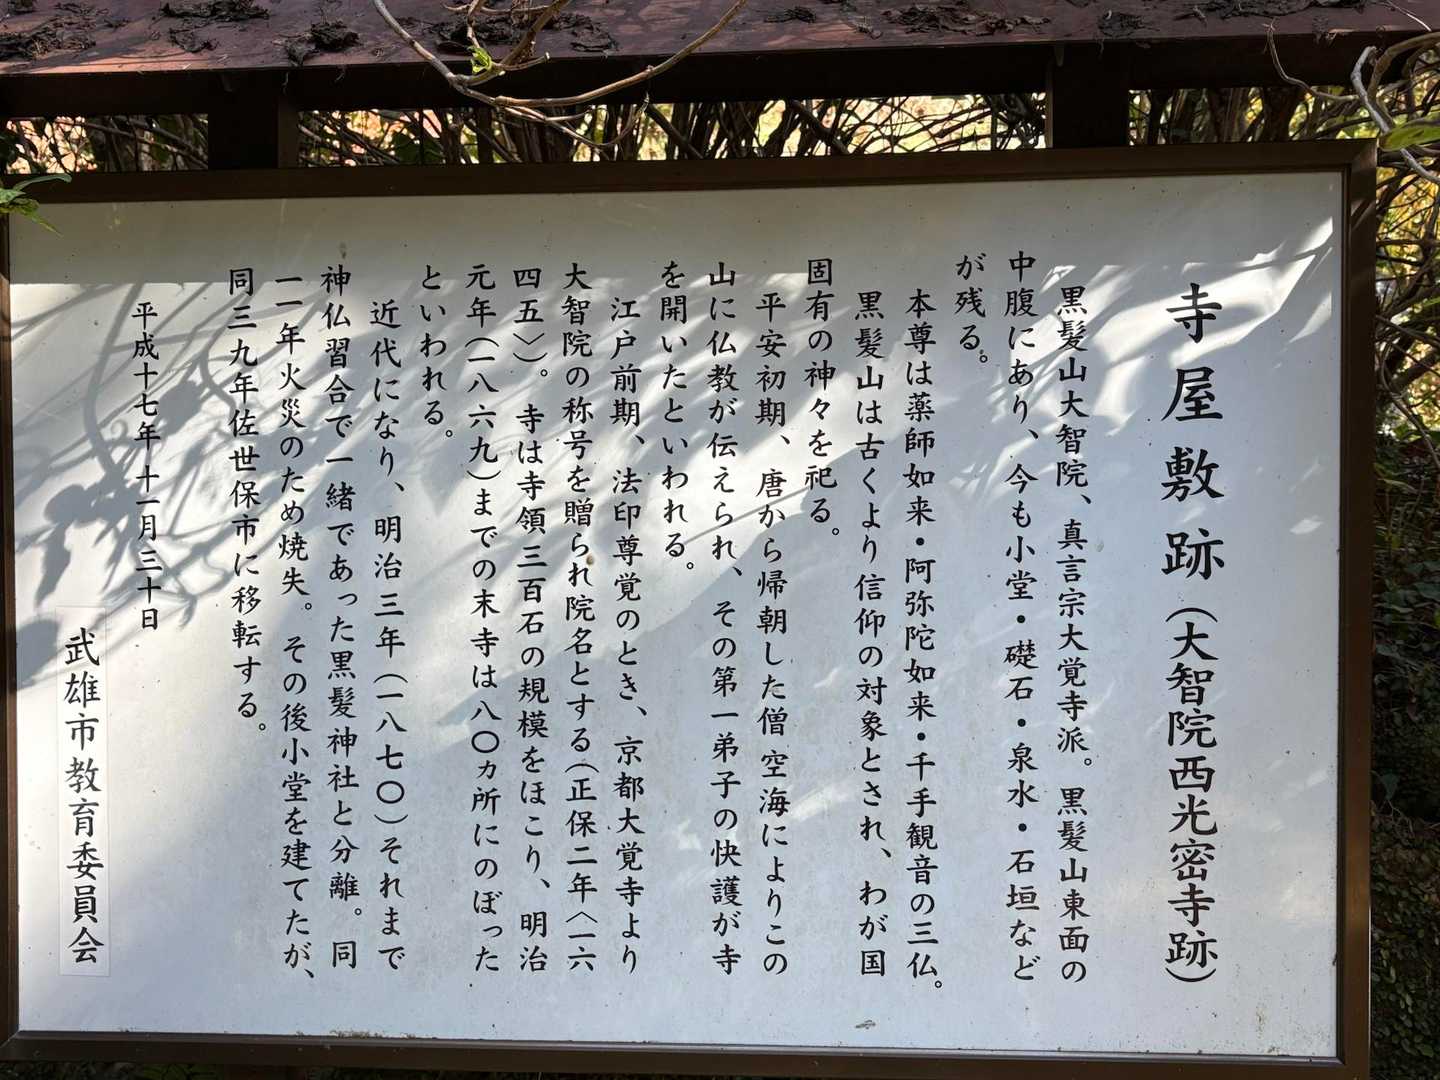 寺屋敷跡（大智院西光密寺跡）
黒髪山大智院、真言宗大覚寺派。黒髪山東面の
中腹にあり、今も小堂・礎石・泉水・石垣など
が残る。
本尊は薬師如来・阿弥陀如来・千手観音の三仏。
黒髪山は古くより信仰の対象とされ、わが国
固有の神々を祀る。
平安初期、唐から帰朝した僧空海によりこの
山に仏教が伝えられ、その第一弟子の快護が寺
を開いたといわれる。
江戸前期、法印尊覚のとき、京都大覚寺より
大智院の称号を贈られ院名とする（正保二年〈一六
四五〉）。寺は寺領三百石の規模をほこり、明治
元年（一八六九）までの末寺は八〇ヵ所にのぼった
といわれる。
近代になり、明治三年（一八七〇）それまで
神仏習合で一緒であった黒髪神社と分離。同
一一年火災のため焼失。その後小堂を建てたが、
同三九年佐世保市に移転する。
平成十七年十一月三十日
武雄市教育委員会